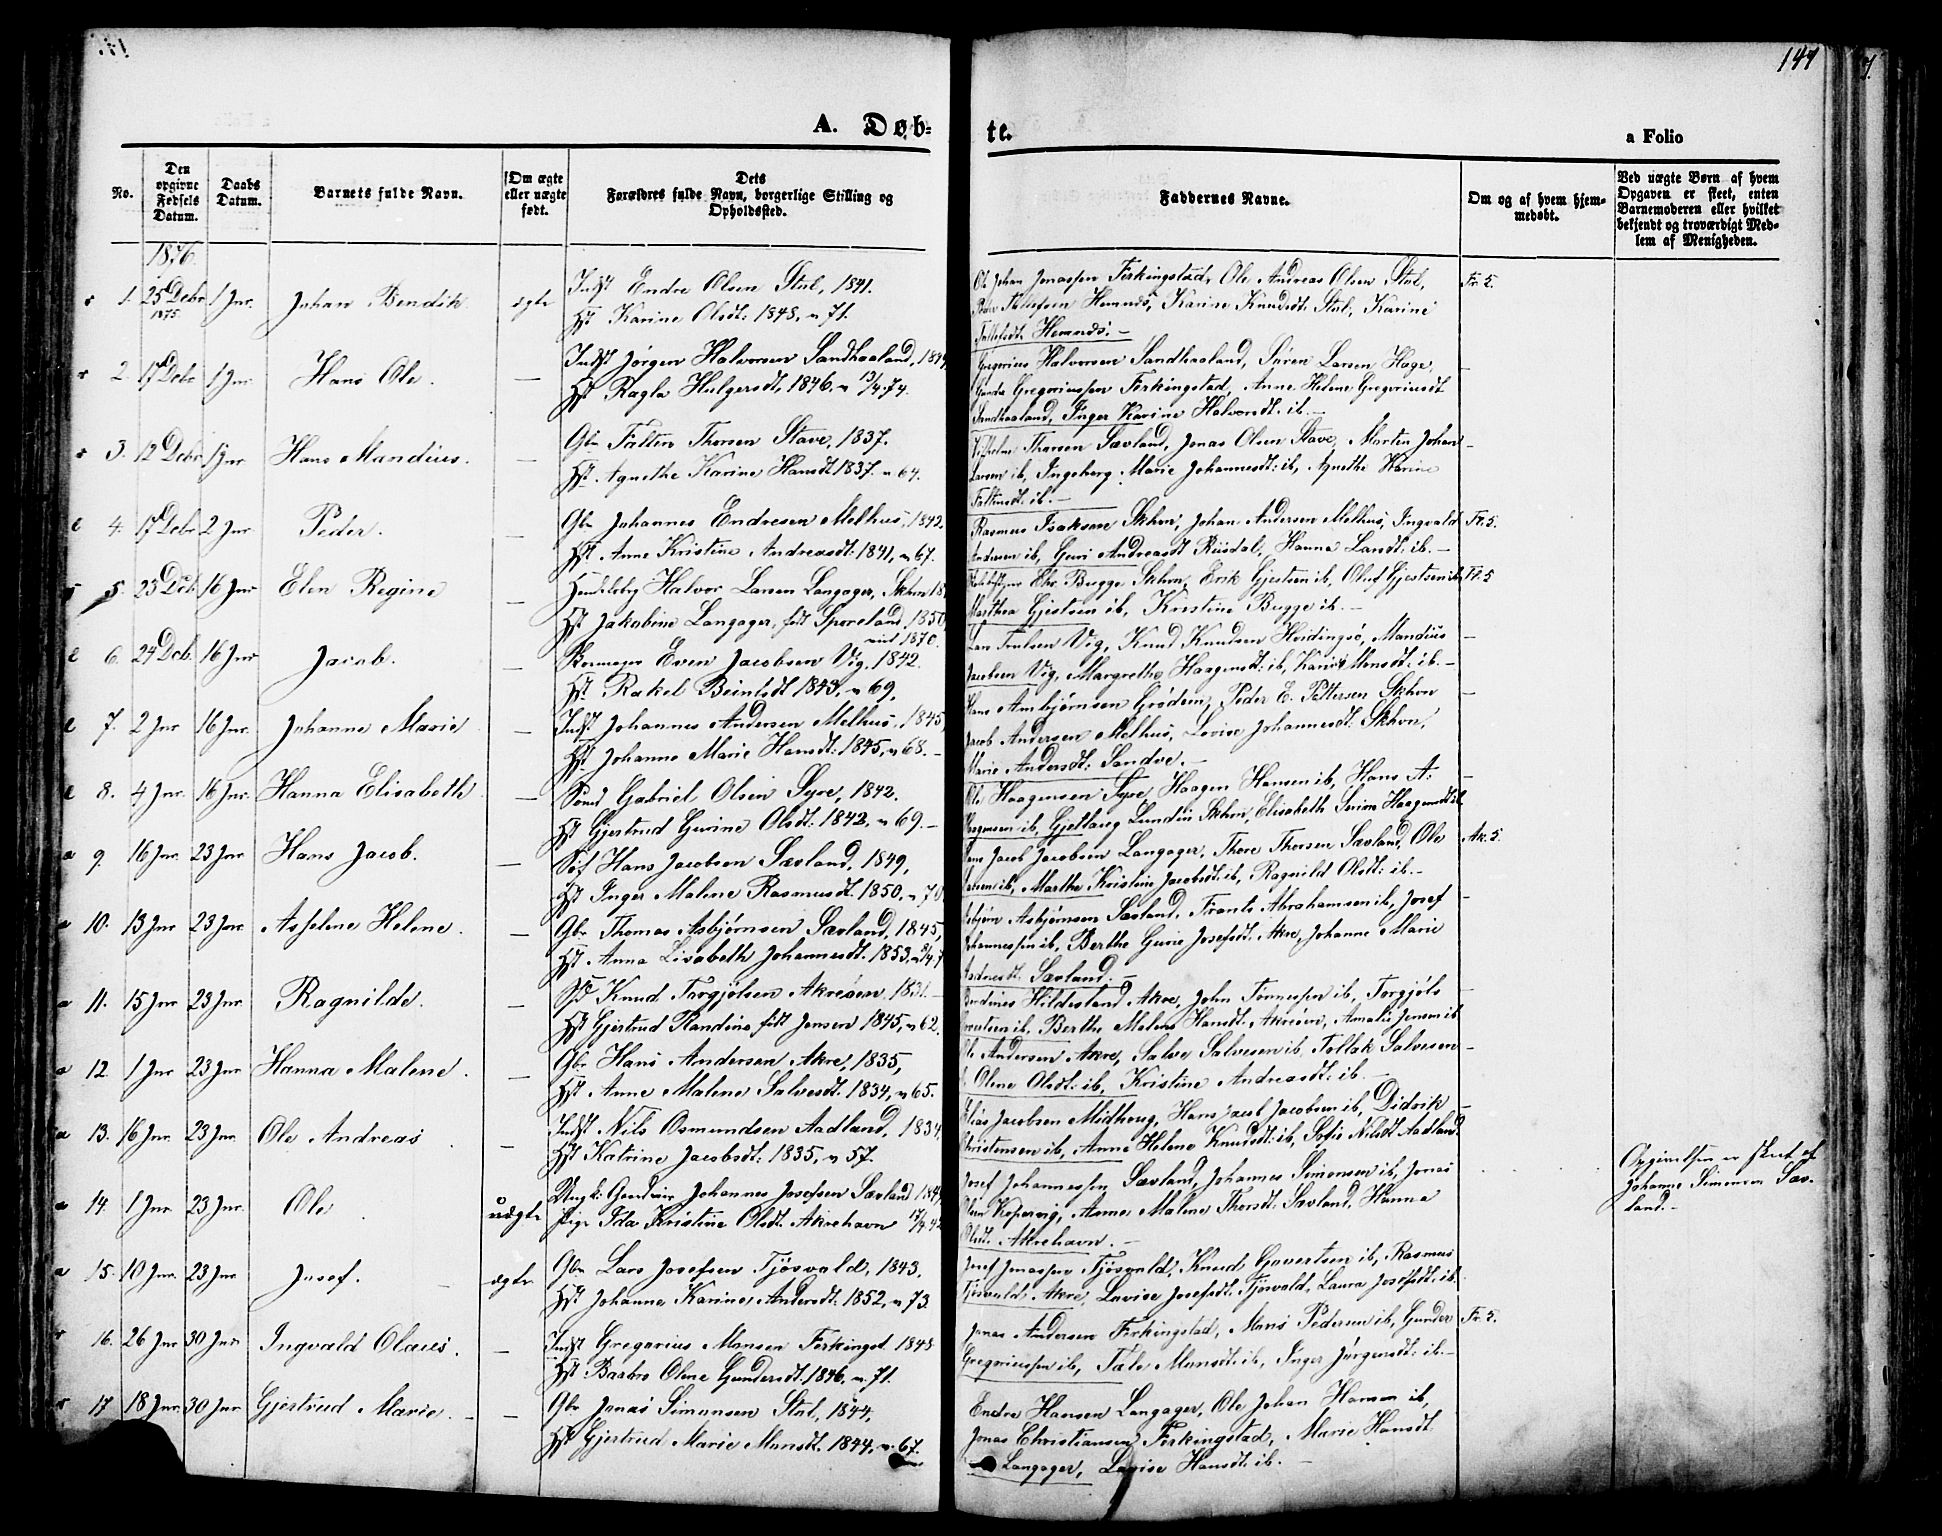 147
A. Døb-
te.
a Folio
No.
Den opgivne Fødsels Datum.
Daabs Datum.
Barnets fulde Navn.
Om ægte eller uægte født.
Dets Forældres fulde Navn, borgerlige Stilling og Opholdssted.
Faddernes Navne.
Om og af hvem hjemmedøbt.
Ved uægte Børn af hvem Opgaven er skeet, enten Barnemoderen eller hvilket bekjendt og troværdigt Medlem af Menigheden.
1876.
1. 25 Debr 1875. 1 Jnr. Johan Bendik. ægte Indst Endre Olsen Stol, 1841.
Hst Karine Olsdt: 1848, v 71.
Ole Johan Jonassen Ferkingstad, Ole Andreas Olsen Stol, Fr. 2.
Peder Tollefsen Hemnæs, Karine Knudsdt Stol, Karine
Tollefsdt Hemnæs. —
2. 17 Debr 1 Jnr. Hans Ole. — Indst Jørgen Halvorsen Sandhaaland,
Hst Ragla Hulgersdt, 1846. v 13/4 74.
Gregorius Halvorsen Sandhaaland, Sören Larsen Hage, —
Gunder Gregoriussen Ferkingstad, Anne Helene Gregoriusdt
Sandhaaland, Inger Karine Halvorsdt: ib. —
3. 12 Debr 1 Jnr. Hans Mandius. — Gbr Falten Thorsen Stave, 1837.
Hst. Agnethe Karine Hansdt 1837. v 64.
Vilhelm Thorsen Sævland, Jonas Olsen Stave, Martin Johan —
Larsen ib, Ingeborg Marie Johannesdt: ib, Agnethe Karine
Faltinsdt: ib. —
4. 17 Debr 2 Jnr. Peder. — Gbr Johannes Endresen Melhus, 1842.
Hst. Anne Kristine Andreasdt: 1841, v 67.
Rasmus Isaksen Skhvn, Johan Andersen Melhus, Ingvald Fr. 5.
Andersen ib, Guri Andreasdt Risdal, Hanna Landt: ib. —
5. 23 Deb. 16 Jnr Elen Regine — Handelsbg Halvor Larsen Langager, Skhvn
Hst Jakobine Langager, født Sporeland, 1850,
viet 1870.
Ebr. Bugge Skhvn, Erik Gjestsen ib, Oluf Gjestsen ib, Fr. 5
Marthea Gjestsen ib, Kristine Bugge ib. —
6. 24 Deb. 16 Jnr Jacob. — Even Jacobsen Vig, 1842.
Hst Rakel Beintsdt 1843, v 69,
Lars Vig, Knud Knudsen Hvidingsø, Mandius —
Jacobsen Vig, Margrethe Haagensdt: ib, Karine Monsdt: ib. —
7. 2 Jnr 16 Jnr. Johanne Marie — Indst Johannes Andersen Melhus, 1845,
Hst Johanne Marie Hansdt: 1845, v 68. —
Hans Ambjørnsen Grødem, Peder E. Pettersen Skhvn —
Jacob Andersen Melhus, Lovise Johannesdt. Skhvn,
Marie Andersdt: Sandve. —
8. 4 Jnr. 16 Jnr. Hanna Elisabeth — Sømd Gabriel Olsen Syre, 1842.
Hst Gjertrud Gurine Olsdt: 1842, v 69. —
Ole Haagensen Syre, Haagen Hansen ib, Hans A: —
ib, Gjetlaug Lundin Skhvn, Elisabeth Serine Haagensdt ib
9. 16 Jnr. 23 Jnr Hans Jacob. — Søf Hans Jacobsen Sævland, 1849,
Hst Inger Malene Rasmusdt. 1850, v 70
Jacob Jacobsen Langager, Thore Thorsen Sævland, Ole Ak. 5.
Larsen ib, Marthe Kristine Jacobsdt: ib, Ragnild Olsdt: ib. —
10. 13 Jnr 23 Jnr Asselene Helene. — Gbr Thomas Asbjørnsen Sævland, 1845,
Hst. Anna Lisabeth Johannesdt. 1853,
Asbjørn Asbjørnsen Sævland, Frants Abrahamsen ib, Josef —
Johannessen ib, Berthe Gurie Josefsdt. Akre, Johanne Marie
Sævland. —
11. 15 Jnr 23 Jnr. Ragnilde. — Knud Torgjølsen Akreøen, 1831.
Hst Gjertrud Randine, født Jensen 1845, v 62.
Hildesland Akre, John Tönnessen ib, Torgjöls —
ib. Berthe Malene Hansdt. Akreøen, Amalie Jensen ib
12. 1 Jnr 23 Jnr Hanna Malene. — Gbr Hans Andersen Akre, 1835,
Hst. Anne Malene Salvesdt. 1834, v 65.
Ole Andersen Akre, Salve Salvesen ib, Tollak Salvesen —
Olene Olsdt: ib, Kristine Andreasdt: ib. —
13. 16 Jnr 23 Jnr. Ole Andreas — Indst Nils Osmundsen Aadland, 1834,
Hst Katrine Jacobsdt: 1835, v 57.
Elias Jacobsen Midhoug, Hans Jacob Jacobsen ib, Didrik —
Christensen ib, Anne Helene Knudsdt: ib, Sofie Nilsdt Aadland.
14. 1 Jnr. 23 Jnr. Ole uægte Ungk: Johannes Josefsen Sævland
Pige Ida Kristine Olsdt Akrehavn
Josef Johannessen Sævland, Johannes Simonsen ib, Jonas
Kopervig, Anne Malene Thorsdt: Sævland, Hanna
Olsdt: Akrehavn. —
Opgivelsen er skeet af
Johannes Simonsen Sæv-
land. —
15. 10 Jnr. 23 Jnr. Josef. ægte Gbr Lars Josefsen Tjøsvold, 1843.
Hst Johanne Karine Andersdt: 1852, v 73.
Josef Jonassen Tjøsvold, Knud Govertsen ib, Rasmus
Tjøsvold Akre, Lovise Josefsdt. Tjøsvold, Laura Josefsdt: ib.
16. 26 Jnr 30 Jnr. Ingvald Olaus. — Indst Gregorius Monsen Ferkingst. 1848
Hst Baabro Olene Gundersdt. 1846, v. 71.
Jonas Andersen Ferkingstad, Mons Pedersen ib, Gunder Fr. 2.
Gregoriussen ib, Tale Monsdt: ib, Inger Jørgensdt: ib. —
17. 18 Jnr. 30 Jnr Gjertrud Marie. — Gbr Jonas Simonsen Stol, 1844,
Hst Gjertrud Marie Monsdt. 1844, v. 67.
Endre Hansen Langager, Ole Johan Hansen ib,
Jonas Christiansen Ferkingstad, Marie Hansdt
Langager, Lovise Hansdt: ib. —